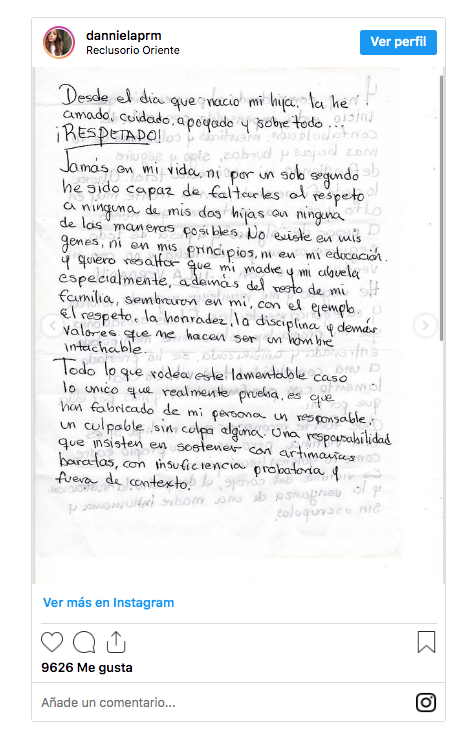 dannielaprm
Reclusorio Oriente
Ver perfil
Desde el día que nació mi hija, la he
amado, cuidado, apoyado y sobre todo...
¡RESPETADO!
Jamás en mi vida, ni por un solo segundo
he sido capaz de faltarles al respeto
a ninguna de mis dos hijas en ninguna
de las maneras posibles. No existe en mis
genes, ni en mis principios, ni en mi educación.
y quiero resaltar que mi madre y mi abuela
especialmente, además del resto de mi
familia, sembraron en mi, con el ejemplo.
El respeto, la honradez, la disciplina y demás
valores que me hacen ser un hombre
intachable.
Todo lo que rodea este lamentable caso
lo unico que realmente prueba, es que
han fabricado de mi persona un responsable,
un culpable, sin culpa alguna. Una responsabilidad
que insisten en sostener con artimañas
baratas, con insuficiencia probatoria y
fuera de contexto.
Ver más en Instagram
9626 Me gusta
Añade un comentario...